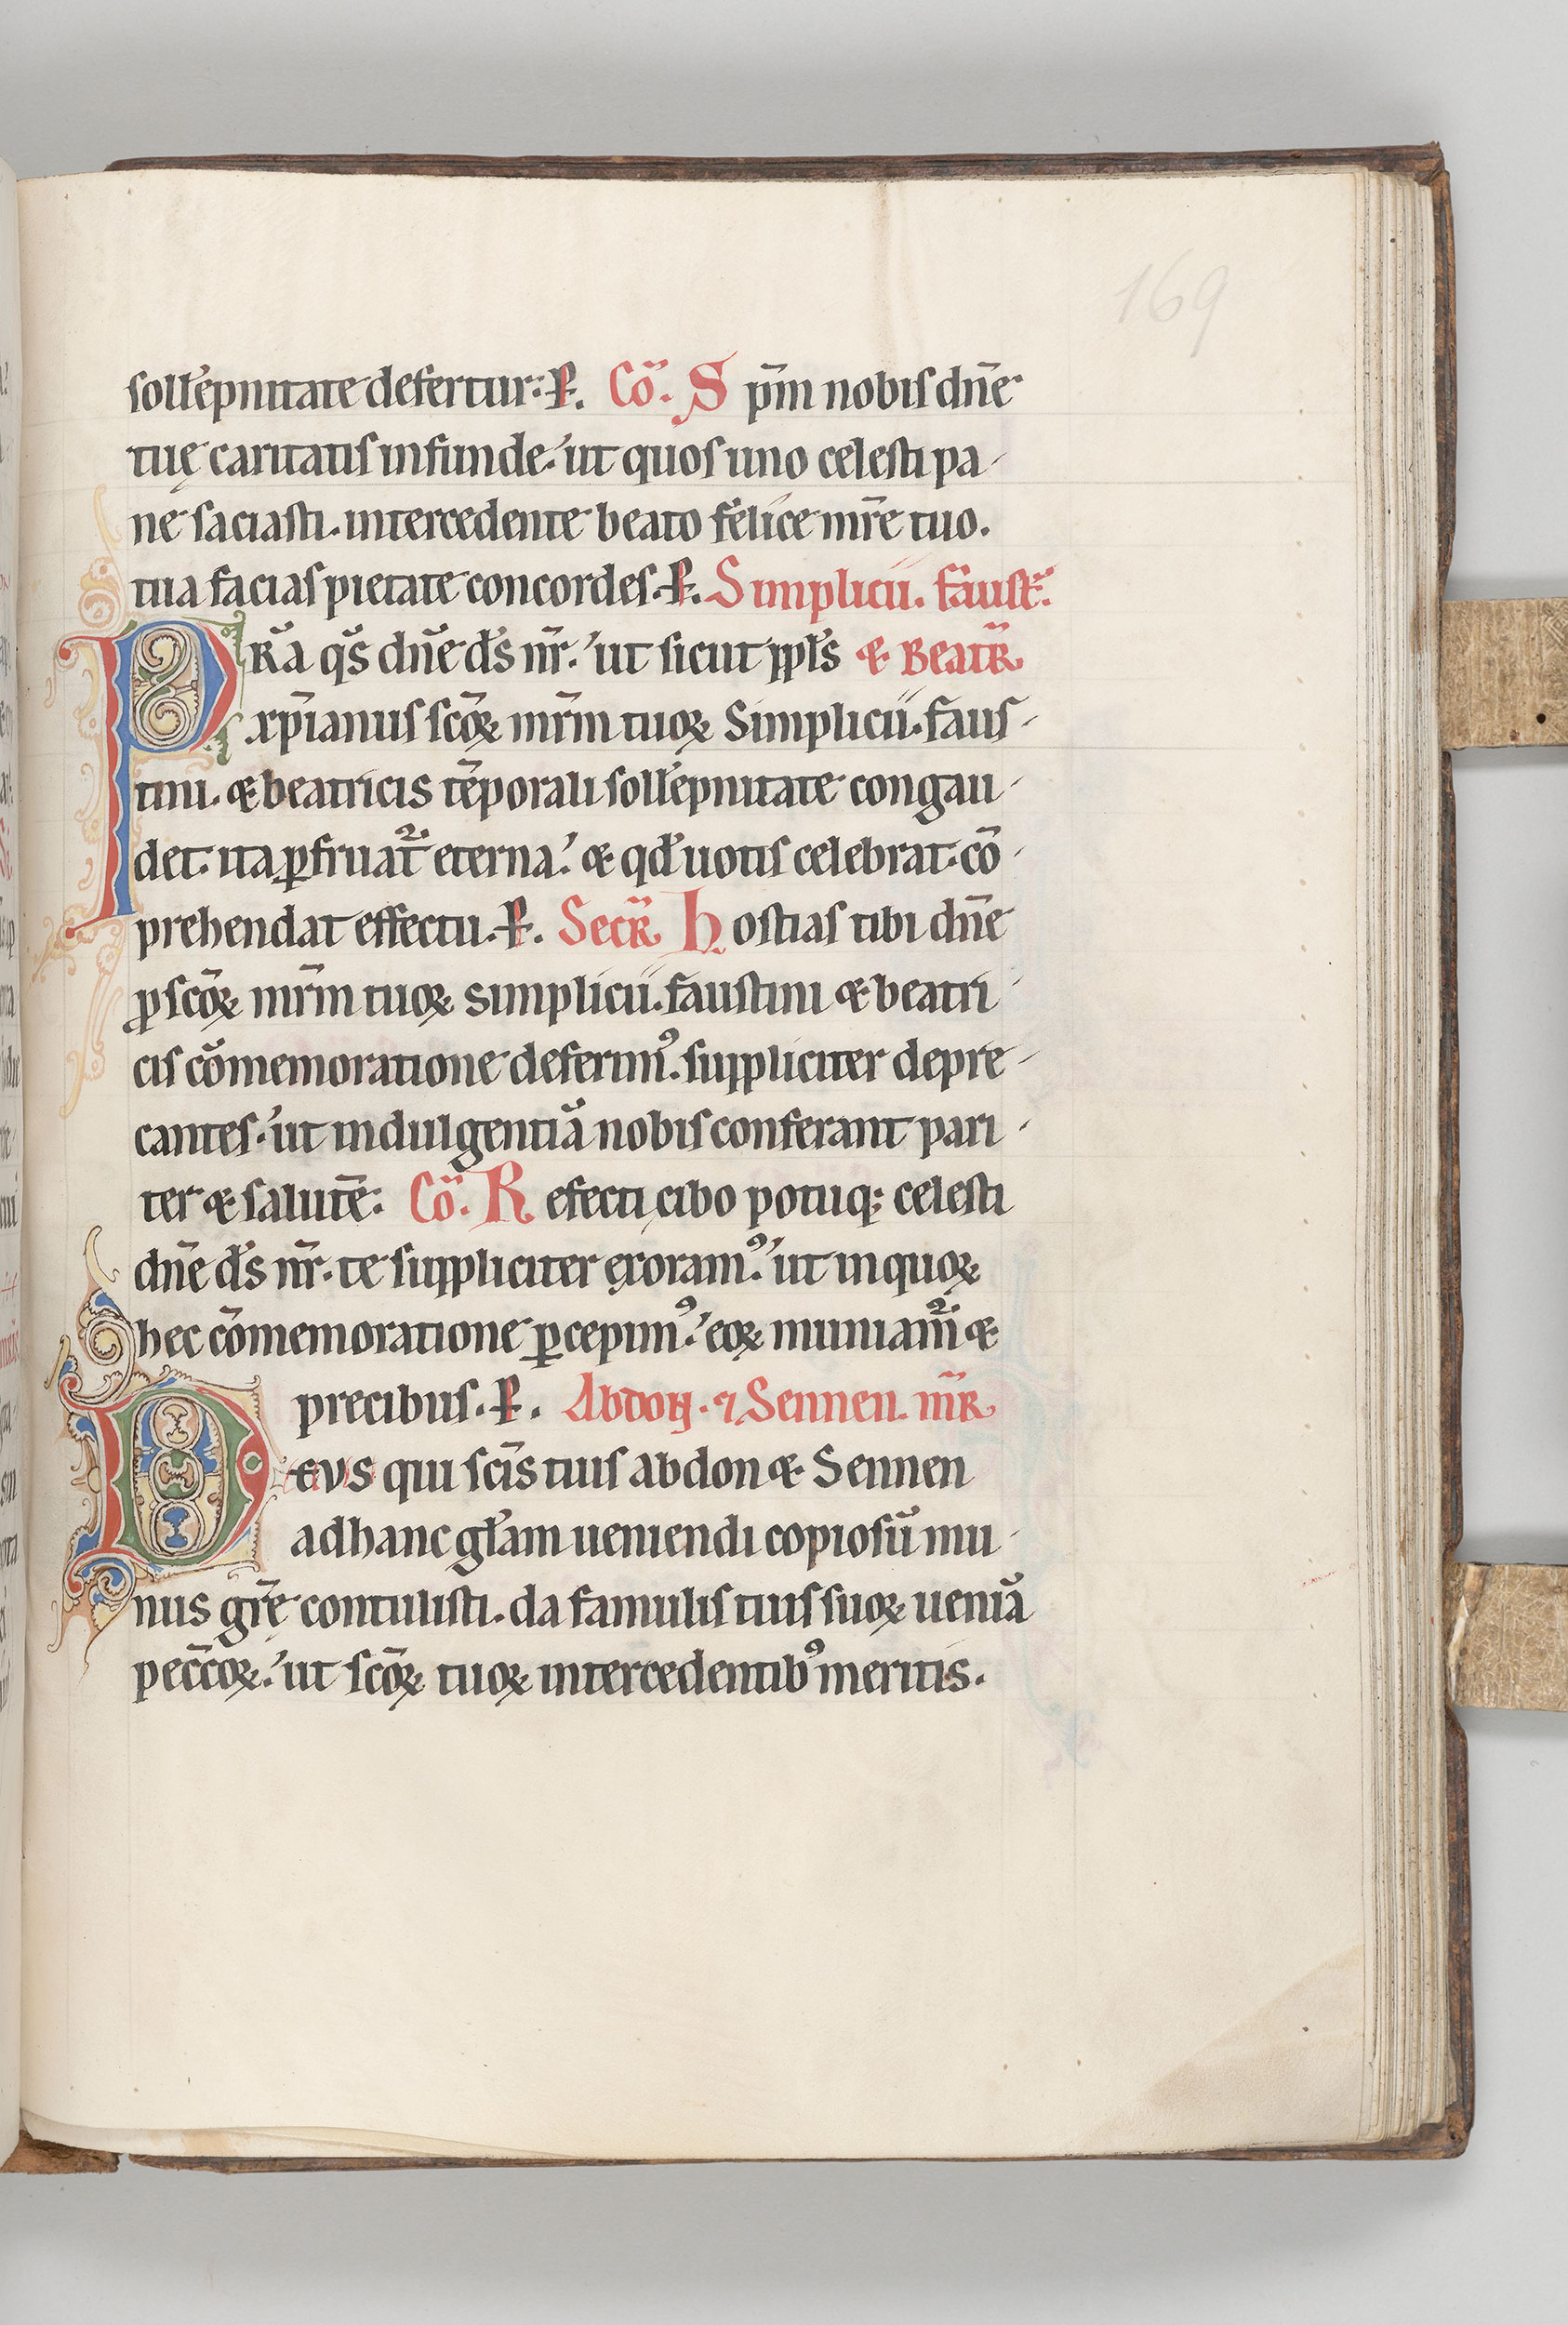 169
sollēpnitate defertur: P. Cō. S pm̄ nobis dn̄e
tuę caritatis infunde. ut quos uno celesti pa-
ne saciasti. intercedente beato felice mr̄e tuo.
tua facias pietate concordes. P. Simplicii. faust.
PRā qs̄ dn̄e ds̄ nr̄. ut sicut ppl̄s & Beatꝶ
xp̄ianus scōꝝ mr̄m tuoꝝ Simplicii. faus-
tini. & beatricis tēporali sollēpnitate congau-
det. ita ꝑfruat̄ᷣ eterna. & qd̄ uotis celebrat. cō-
prehendat effectu. P. Secꝶ hostias tibi dn̄e
ꝓ scōꝝ mr̄m tuoꝝ simplicii. faustini & beatri-
cis cōmemoratione deferimꝰ. suppliciter depre-
cantes. ut indulgentiā nobis conferant pari-
ter & salutē: Cō. Refecti cibo potuq; celesti
dn̄e ds̄ nr̄. te suppliciter exoramꝰ. ut in quoꝝ
hec cōmemoratione ꝑcepimꝰ. eoꝝ muniam̄ᷣ &
precibus. P. Abdon. ⁊ Sennen. mꝶ
DEVS qui scīs tuis abdon & Sennen
ad hanc gl̄am ueniendi copiosū mu-
nus gr̄ę contulisti. da famulis tuis suoꝝ ueniā
peccōꝝ. ut scōꝝ tuoꝝ intercedentibꝰ meritis.